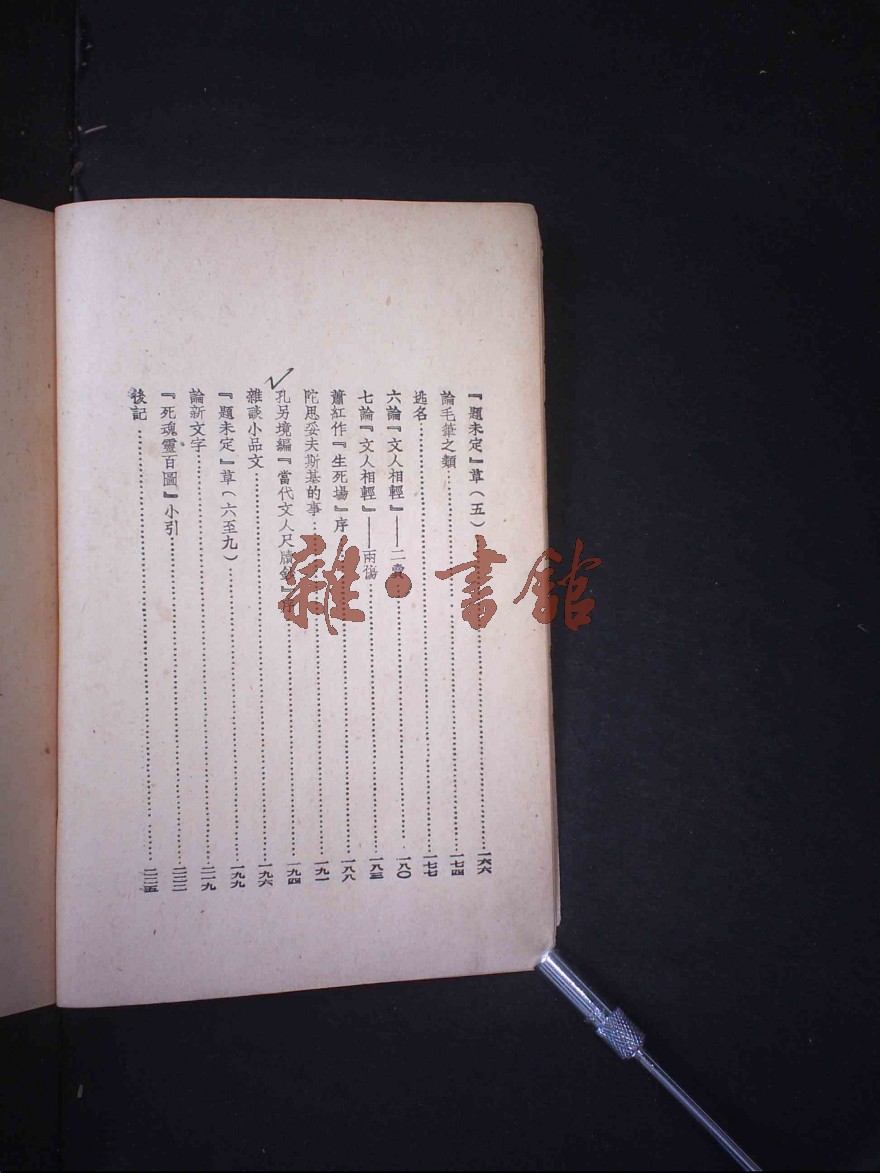 『題未定』草(五)……一六六
論毛筆之類……一七四
逃名……一七七
六論『文人相輕』——二賣……一八〇
七論『文人相輕』——兩傷……一八三
蕭紅作『生死場』序……一八八
陀思妥夫斯基的事……一九一
孔另境編『當代文人尺牘鈔』序……一九四
雜談小品文……一九六
『題未定』草(六至九)……一九九
論新文字……二一九
『死魂靈百圖』小引……二二二
後記……二二五
雜·書館